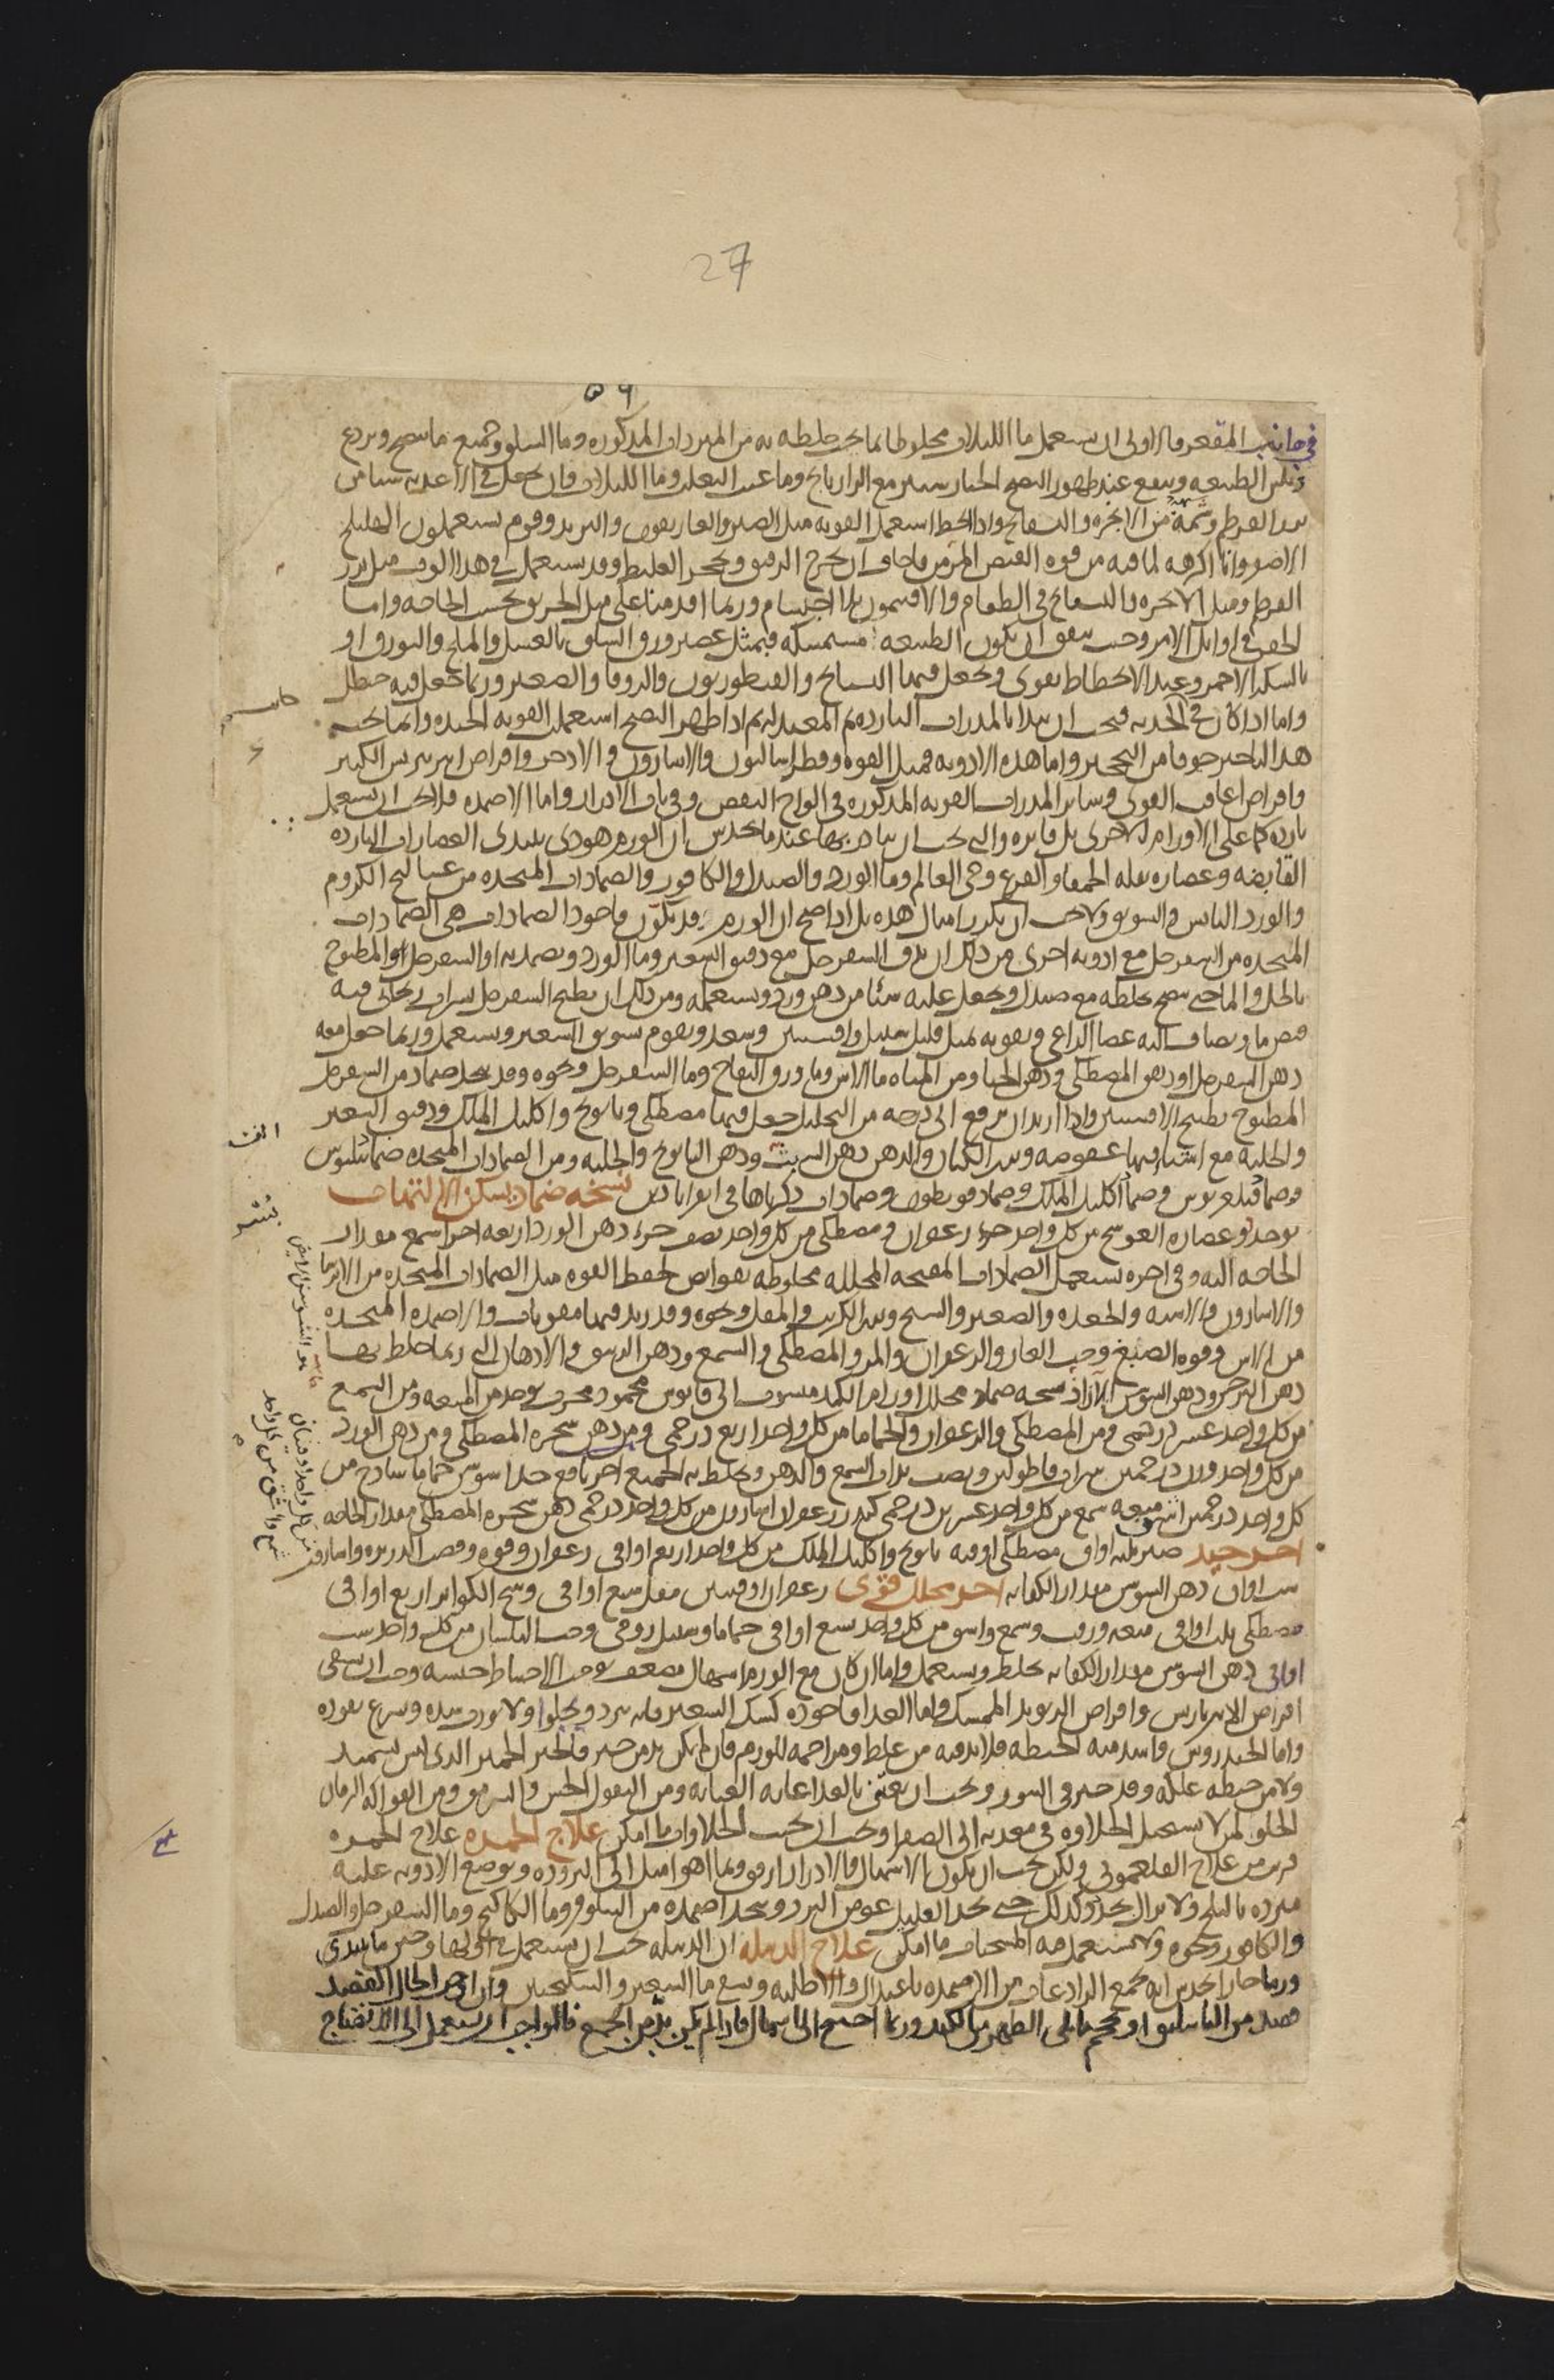 27
٥٦
في جانب المقعر فالاولى ان يستعمل ما اللبلاب مخلوطا بما يجب خلطه به من المبردات المذكورة وما السلق وجميع ما ينضج ويردع
ويلين الطبيعة وينفع عند ظهور النضج الخيار شنبر مع الرازيانج وما عنب الثعلب وما اللبلاب وان يجعل في الاغذية شيا من
بزر القرطم وشمة من الانجرة والبسفايج واذا انحط استعمل القوية مثل الصبر والغاريقون والتربد وقوم يستعملون الهليلج
الاصفر وانا اكرهه لما فيه من قوة القبض المزمن فاخاف ان يخرج الرقيق ويحجر الغليظ وقد يستعمل في هذا الوقت مثل بزر
القرطم ومثل الانجرة والبسفايج في الطعام والافتيمون بلا احتشام وربما اقدمنا على مثل الخربق بحسب الحاجة واما
الحقن في اوايل الامر وحيث يتفق ان يكون الطبيعة مستمسكة فبمثل عصير ورق السلق بالعسل والملح والبورق او
بالسكر الاحمر وعند الانحطاط يقوى ويجعل فيها البسبايج والقنطوريون والزوفا والصعتر وربما جعل فيه حنظل
واما اذا كان في الحدبة فيجب ان يبدا بالمدرات الباردة ثم المعتدلة ثم اذا ظهر النضج استعمل القوية الجيدة وانما يجب
هذا التاخير خوفا من التحجر واما هذه الادوية فمثل الفوة وفطراساليون والاسارون والاذخر واقراص امبرباريس الكبير
واقراص الغافت القوى وساير المدرات القوية المذكورة في الواح النفض وفي باب الادرار واما الاضمدة فلا يجب ان يستعمل
باردة كما على الاورام الاخرى بل فاترة والتي يجب ان يبادر بها عند ما يحدس ان الورم هوذى يبتدى العصارات الباردة
القابضة وعصارة بقلة الحمقا والقرع وحى العالم وما الورد والصندل والكافور والضمادات المتخذة من عساليج الكروم
والورد اليابس والسويق ولا يجب ان يكرر امثال هذه بل اذا صح ان الورم قد تكون فاجود الضمادات هى الضمادات
المتخذة من السفرجل مع ادوية اخرى من ذلك ان يدق السفرجل مع دقيق الشعير وما الورد ويضمد به او السفرجل المطبوخ
بالخل والما حتى ينضج يخلطه مع صندل ويجعل عليه شيا من دهن ورد ويستعمله ومن ذلك ان يطبخ السفرجل بشراب ريحانى فيه
قبض ما ويضاف اليه عصا الراعى وبقوية بمثل قليل سنبل وافسنتين وسعد ويقوم بسويق الشعير ويستعمل وربما جعل معه
دهن السفرجل او دهن المصطكى ودهن الحنا ومن المياه ما الاس وما ورق التفاح وما السفرجل ونحوه وقد يتخذ ضماد من السفرجل
المطبوخ بطبيخ الافسنتين واذا اريد ان يرفع الى درجة من التحليل جعل فيها مصطكى وبابونج واكليل الملك ودقيق الشعير
والحلبة مع اشيا فيها عفوصة وبزر الكتان والدهن دهن الشبث ودهن البابونج والحلبة ومن الضمادات المتخذة ضماد فيلبوس
وضماد فيلغريوس وضماد اكليل الملك وضماد قربطون وضمادات ذكرناها في اقراباذين نسخة ضماد يسكن الالتهاب
يوخذ فوفل عصارة العوسج من كل واحد جزء زعفران ومصطكى من كل واحد نصف جزء دهن الورد اربعة اجزا شمع مقدار
الحاجة اليه وفي اخره يستعمل الضمادات المفتحة المحللة مخلوطة بقوابض لحفظ القوة مثل الضمادات المتخذة من الايرسا
والاسارون والاشنة والجعدة والصعتر والشيح وبزر الكرنب والمقل ونحوه وقد يزيد فيها مقويات والاضمدة المتخذة
من الاس وفوة الصبغ وحب الغار والزعفران والمر والمصطكى والشمع ودهن الزنبق والادهان التي ربما خلط بها
دهن النرجس ودهن السوسن الازاذ نسخة ضماد محلل اورام الكبد منسوب الى قابوس محمود مجرب يوخذ من الميعة ومن الشمع
من كل واحد عشر درخمى ومن المصطكى والزعفران والحماما من كل واحد اربع درخمى ومن دهن شجرة المصطكى ومن دهن الورد
كل واحد درخمين اشق ميعة شمع من كل واحد عشرين درخمى كندر زعفران اسارون من كل واحد درخمى دهن شجرة المصطكى مقدار الحاجة
اخر جيد صبر ثلثه اواق مصطكى اوقية بابونج واكليل الملك من كل واحد اربع اواقى زعفران وفوة وقصب الذريرة واسارون
ست اواق دهن السوسن مقدار الكفاية اخر محلل قوى زعفران اوقيتين مقل تسع اواقى وسخ الكواير اربع اواقى
مصطكى ثلث اواقى ميعة وزفت وشمع واشق من كل واحد تسع اواقى حماما وسنبل رومى وحب البلسان من كل واحد ست
اواقى دهن السوسن مقدار الكفاية يخلط ويستعمل واما ان كان مع الورم اسهال مضعف يوجب الاحتياط حبسه وجب ان يسقى
اقراص الامبرباريس واقراص الريوند الممسك واما الغذا فاجوده كشك الشعير فانه يبرد ويجلوا ولا يورث سددة ويسرع نفوذه
واما الخندروس واشد منه الحنطة فلابد فيه من غلظ ومزاحمة للورم فان لم يكن بد من خبز فالخبز الخمير الذى ليس بسميذ
ولا من حنطة علكة وقد خبز في التنور ويجب ان يعتنى بالغذا غاية العناية ومن البقول الخس والسرمق ومن الفواكه الرمان
الحلو لمن لا يستحيل الحلاوة في معدته الى الصفرا ويجب ان يجتنب الحلاوات ما امكن علاج الحمرة علاج الحمرة
قريب من علاج الفلغمونى ولكن يجب ان يكون الاسهال والادرار ارفق وبما هو اميل الى البرودة ويوضع الادوية عليه
مبردة بالثلج ولا يزال يجدد كذلك حتى يجد العليل غوص البرد ويتخذ اضمدة من النيلوفر وما الكاكنج وما السفرجل والصندل
والكافور ونحوه ولا يستعمل فيه المسخنات ما امكن علاج الدبيلة ان الدبيلة يجب ان يستعمل في اولها وحين ما يبتدى
ورما حارا يحدس انه يجمع الرادعات من الاضمدة باعتدال والاطلية ويسقى ما الشعير والسكنجبين وان اوجب الحال الفصد
فصد من الباسليق او يحجم ما يلى الظهر من الكبد وربما احتيج الى اسهال فاذا لم يكن بد من الجمع فالواجب ان يستعمل الى الانفتاح